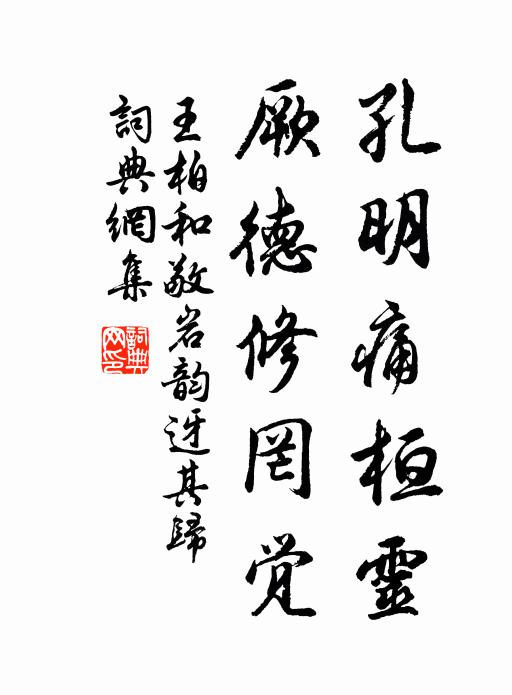 孔明痛桓靈
厥德修罔觉
王柏和敬岩韵迓其歸
詞典網集
詞典網印